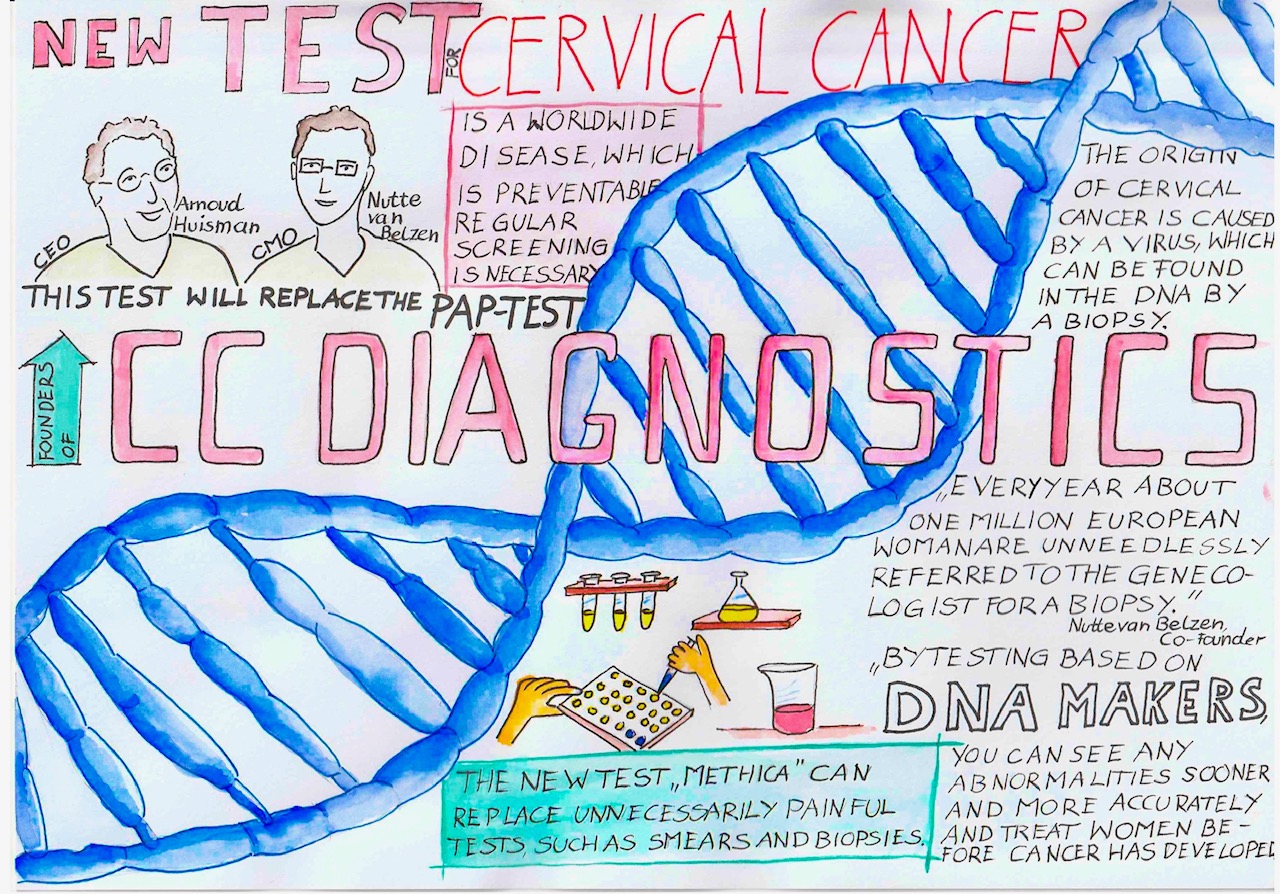 NEW TEST FOR CERVICAL CANCER
IS A WORLDWIDE
DISEASE, WHICH
IS PREVENTABLE
REGULAR
SCREENING
IS NECESSARY
CEO
Arnoud
Huisman
CMO
Nutte
van
Belzen
THIS TEST WILL REPLACE THE PAP-TEST
THE ORIGIN
OF CERVICAL
CANCER IS CAUSED
BY A VIRUS, WHICH
CAN BE FOUND
IN THE DNA BY
A BIOPSY.
FOUNDERS
OF
CC DIAGNOSTICS
„EVERY YEAR ABOUT
ONE MILLION EUROPEAN
WOMAN ARE UNNEEDLESSLY
REFERRED TO THE GENECO-
LOGIST FOR A BIOPSY."
Nutte van Belzen,
Co-founder
„BY TESTING BASED ON
DNA MAKERS,
YOU CAN SEE ANY
ABNORMALITIES SOONER
AND MORE ACCURATELY
AND TREAT WOMEN BE-
FORE CANCER HAS DEVELOPED
THE NEW TEST „METHICA" CAN
REPLACE UNNECESSARILY PAINFUL
TESTS, SUCH AS SMEARS AND BIOPSIES.